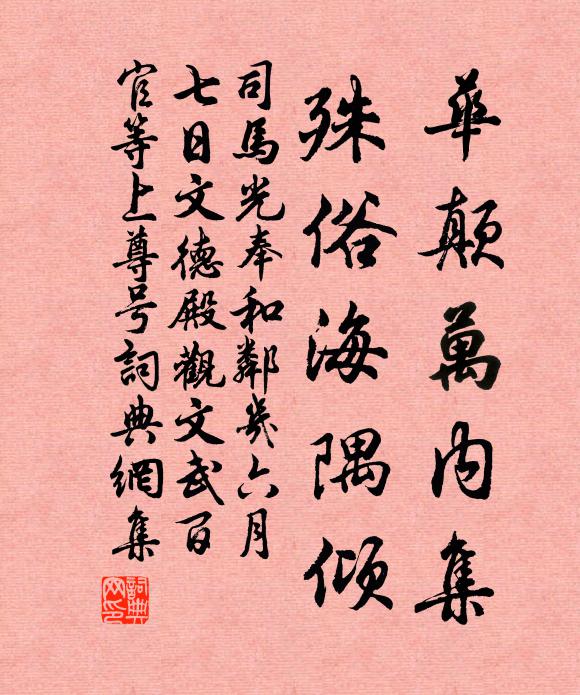 華顛萬内集
殊俗海隅傾
司馬光奉和鄰幾六月
七日文德殿觀文武百
官等上尊号詞典網集
詞典
网印